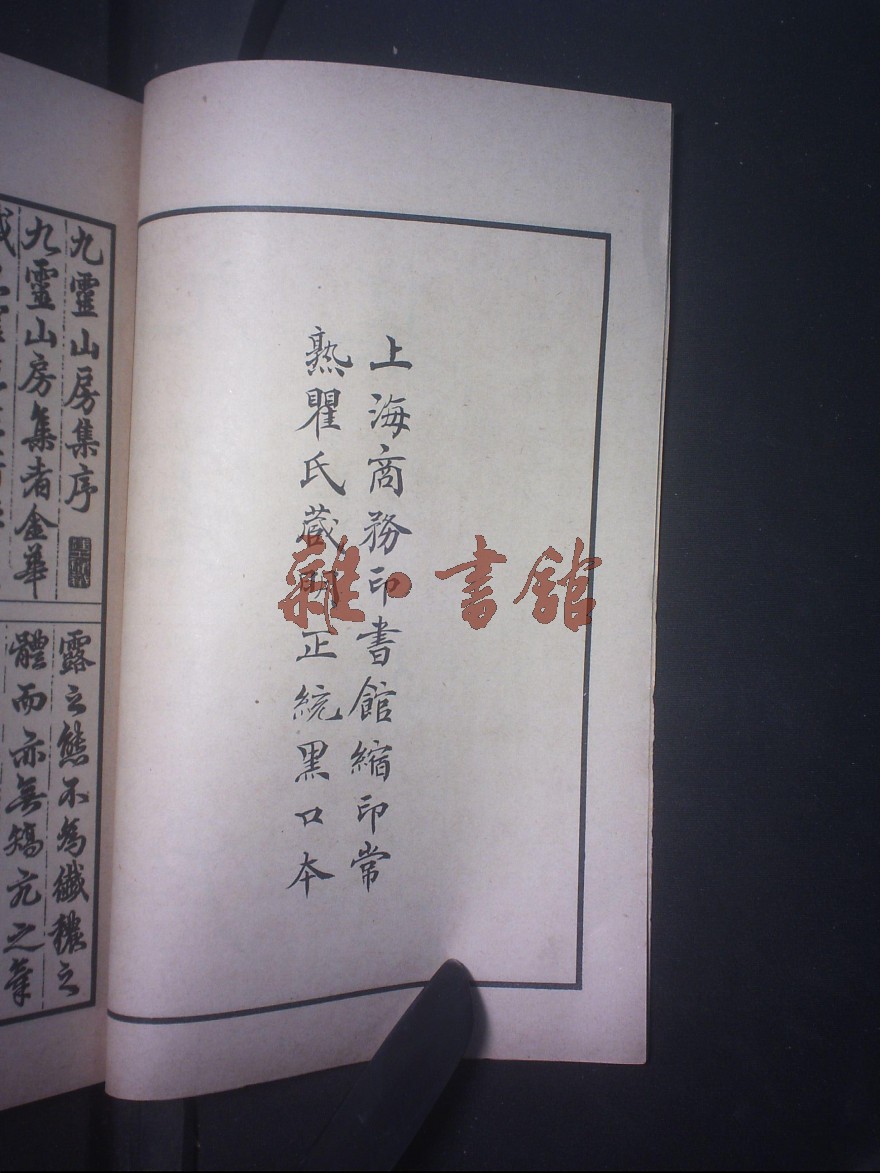 上海商務印書館縮印常
熟瞿氏藏明正統黑口本
九靈山房集序
九靈山房集者金華
露之態不為纖穠之
體而亦無矯亢之氣
雜書館